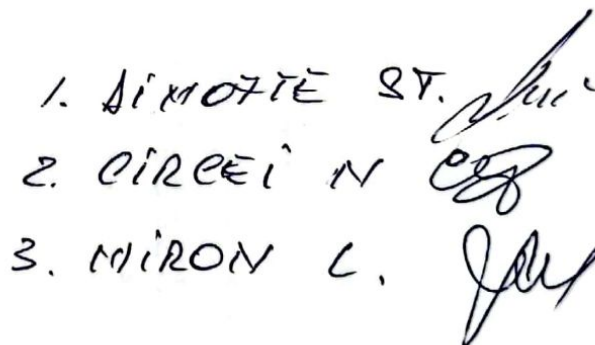 1. SIMOFTE ST.
2. CIRCEI N
3. MIRON C.